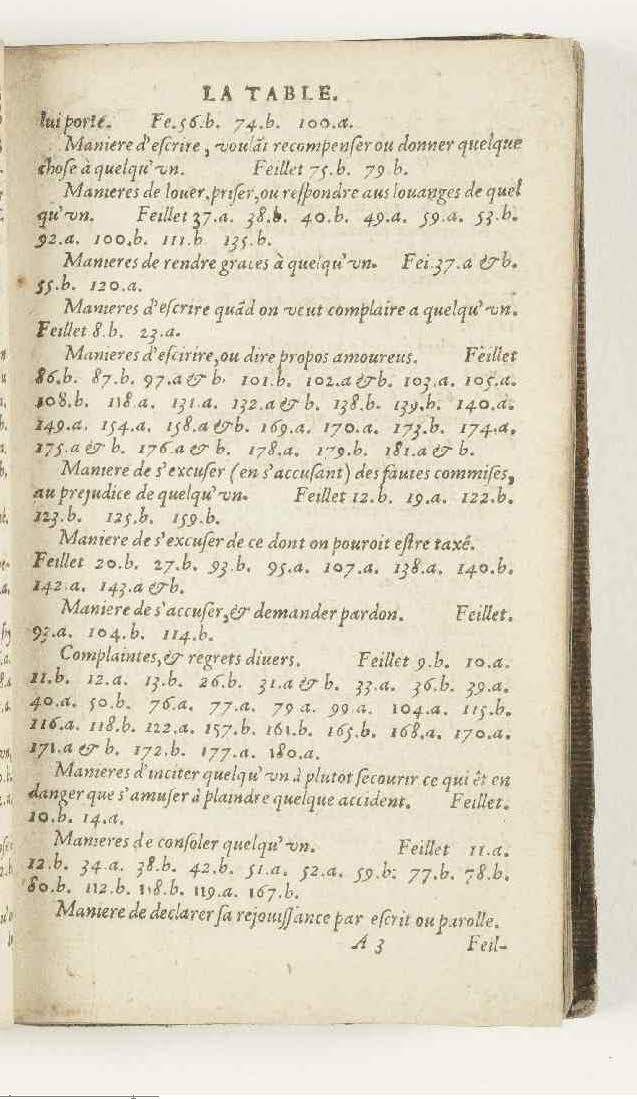 LA TABLE.
lui porte. Fe.56.b. 74.b. 100.a.
Maniere d'escrire, voulãt recompenser ou donner quelque
chose à quelqu'vn. Feillet 75.b. 79.b.
Manieres de louer, priser, ou respondre aus louanges de quel
qu'vn. Feillet 37.a. 38.b. 40.b. 49.a. 59.a. 53.b.
92.a. 100.b. 111.b 135.b.
Manieres de rendre graces à quelqu'vn. Fei.37.a & b.
55.b. 120.a.
Manieres d'escrire quãd on veut complaire a quelqu'vn.
Feillet 8.b. 23.a.
Manieres d'escirire, ou dire propos amoureus. Feillet
86.b. 87.b. 97.a & b. 101.b. 102.a & b. 103.a. 105.a.
108.b. 118.a. 131.a. 132.a & b. 138.b. 139.b. 140.a.
149.a. 154.a. 158.a & b. 169.a. 170.a. 173.b. 174.a.
175.a & b. 176.a & b. 178.a. 179.b. 181.a & b.
Maniere de s'excuser (en s'accusant) des fautes commises,
au prejudice de quelqu'vn. Feillet 12.b. 19.a. 122.b.
123.b. 125.b. 159.b.
Maniere de s'excuser de ce dont on pouroit estre taxé.
Feillet 20.b. 27.b. 93.b. 95.a. 107.a. 138.a. 140.b.
142.a. 143.a & b.
Maniere de s'accuser, & demander pardon. Feillet.
93.a. 104.b. 114.b.
Complaintes, & regrets divers. Feillet 9.b. 10.a.
11.b. 12.a. 13.b. 26.b. 31.a & b. 33.a. 36.b. 39.a.
40.a. 50.b. 76.a. 77.a. 79 a. 99 a. 104.a. 115.b.
116.a. 118.b. 122.a. 157.b. 161.b. 165.b. 168.a. 170.a.
171.a & b. 172.b. 177.a. 180.a.
Manieres d'inciter quelqu'vn à plutot secourir ce qui êt en
danger que s'amuser à plaindre quelque accident. Feillet.
10.b. 14.a.
Manieres de consoler quelqu'vn. Feillet 11.a.
12.b. 34.a. 38.b. 42.b. 51.a. 52.a. 59.b. 77.b. 78.b.
80.b. 112.b. 118.b. 119.a. 167.b.
Maniere de declarer sa rejouissance par escrit ou parolle.
A 3 Feil-